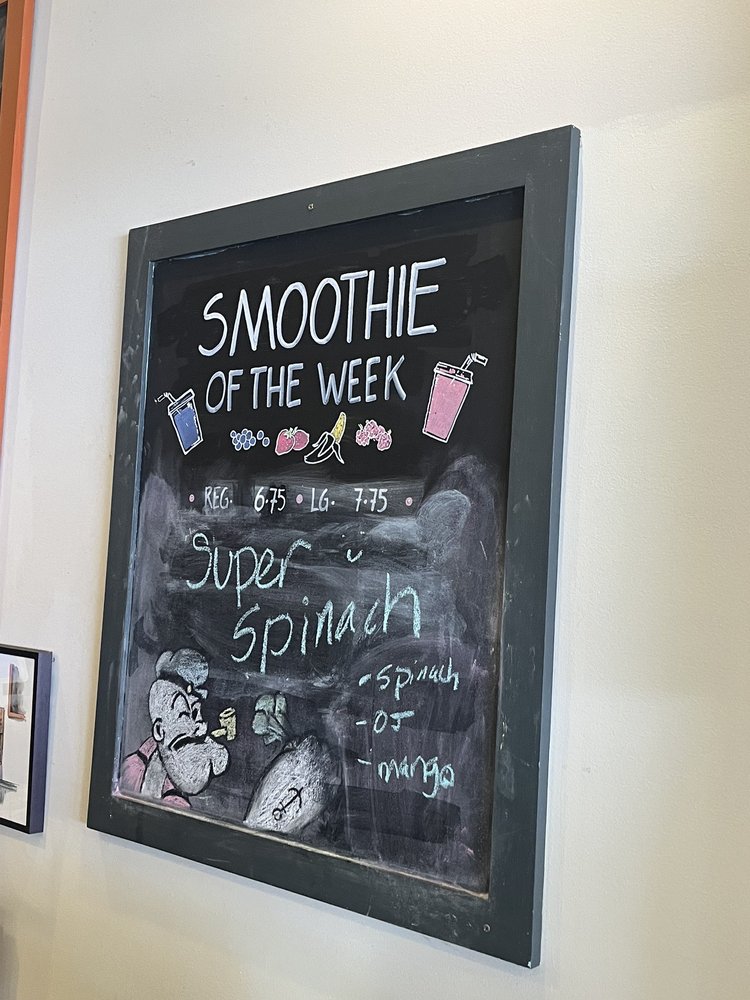 SMOOTHIE
OF THE WEEK
• REG. 6.75 • LG. 7.75 •
Super
Spinach
- spinach
- OJ
- mango